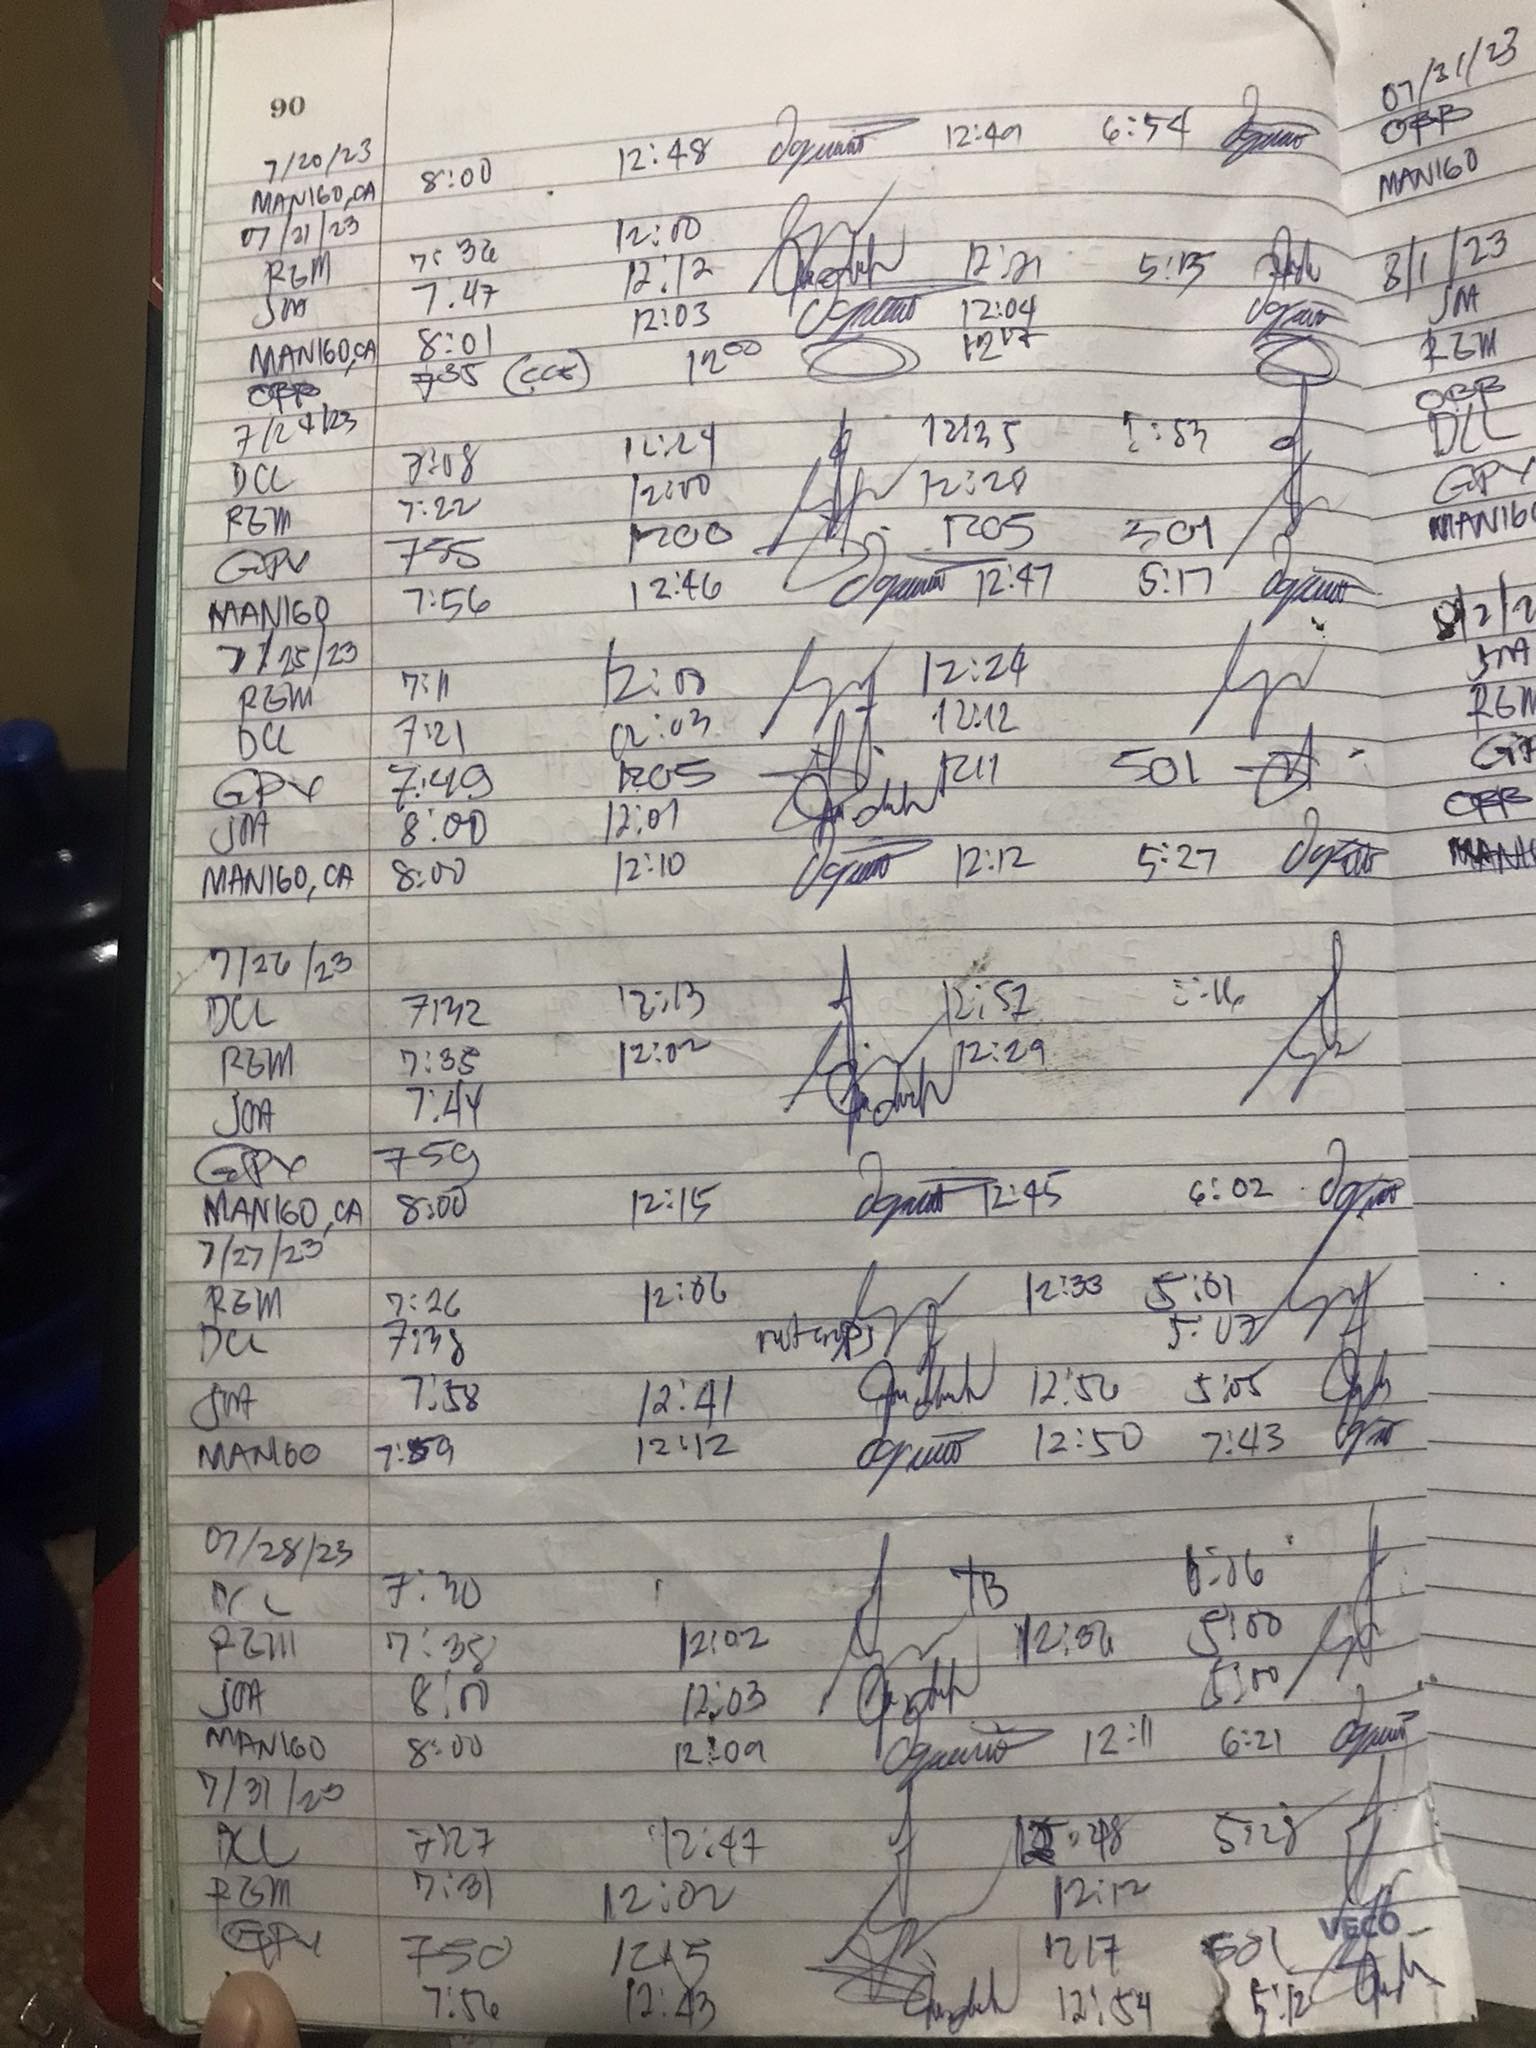 90
7/20/23
MANIGO,CA 8:00 12:48 12:49 6:54
07/21/23
RGM 7:36 12:00
JOA 7.47 12:12 12:21 5:15
MANIGO,CA 8:01 12:03 12:04
OBB 735 1200
7/24/23
DCL 7:08 12:24 12:35
RGM 7:22 12:00 12:20
GPY 755 1200 1205 501
MANIGO 7:56 12:46 12:47 5:17
7/25/23
RGM 7:11 12:00 12:24
DCL 7:21 12:03 12:12
GPY 7:49 1205 1211 501
JOA 8:00 12:01
MANIGO, CA 8:00 12:10 12:12 5:27
7/26/23
DCL 7:32 12:13 12:57
RGM 7:35 12:02 12:29
JOA 7:44
GPY 759
MANIGO,CA 8:00 12:15 12:45 6:02
7/27/23
RGM 7:26 12:06 12:33 5:01
DCL 7:38 5:03
JOA 7:58 12:41 12:56 5:05
MANIGO 7:59 12:12 12:50 7:43
07/28/23
DCL 7:30 TB
RGM 7:38 12:02 12:06 5:00
JOA 8:00 12:03 5:00
MANIGO 8:00 12:09 12:11 6:21
7/31/23
DCL 7:27 12:47 :48 5:28
RGM 7:31 12:02 12:12
GPY 750 1215 1217 501
7:56 12:43 12:54 5:12
VECO
07/31/23
OBB
MANIGO
8/1/23
JOA
RGM
OBB
DCL
GPY
MANIGO
8/2/2
JOA
RGM
GP
OBB
MANI